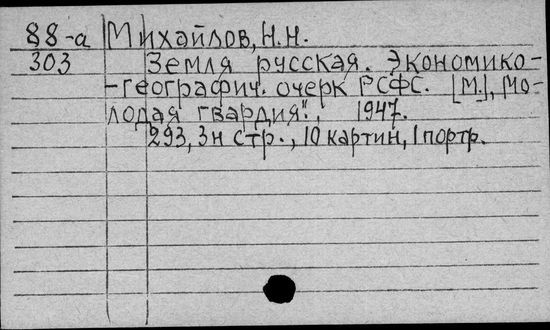 88-а Михайлов, Н.Н.
303 Земля русская. Экономико-
-географич. очерк РСФС. [М.], „Мо-
лодая гвардия", 1947.
293, 3н стр., 10 картин, 1 портр.